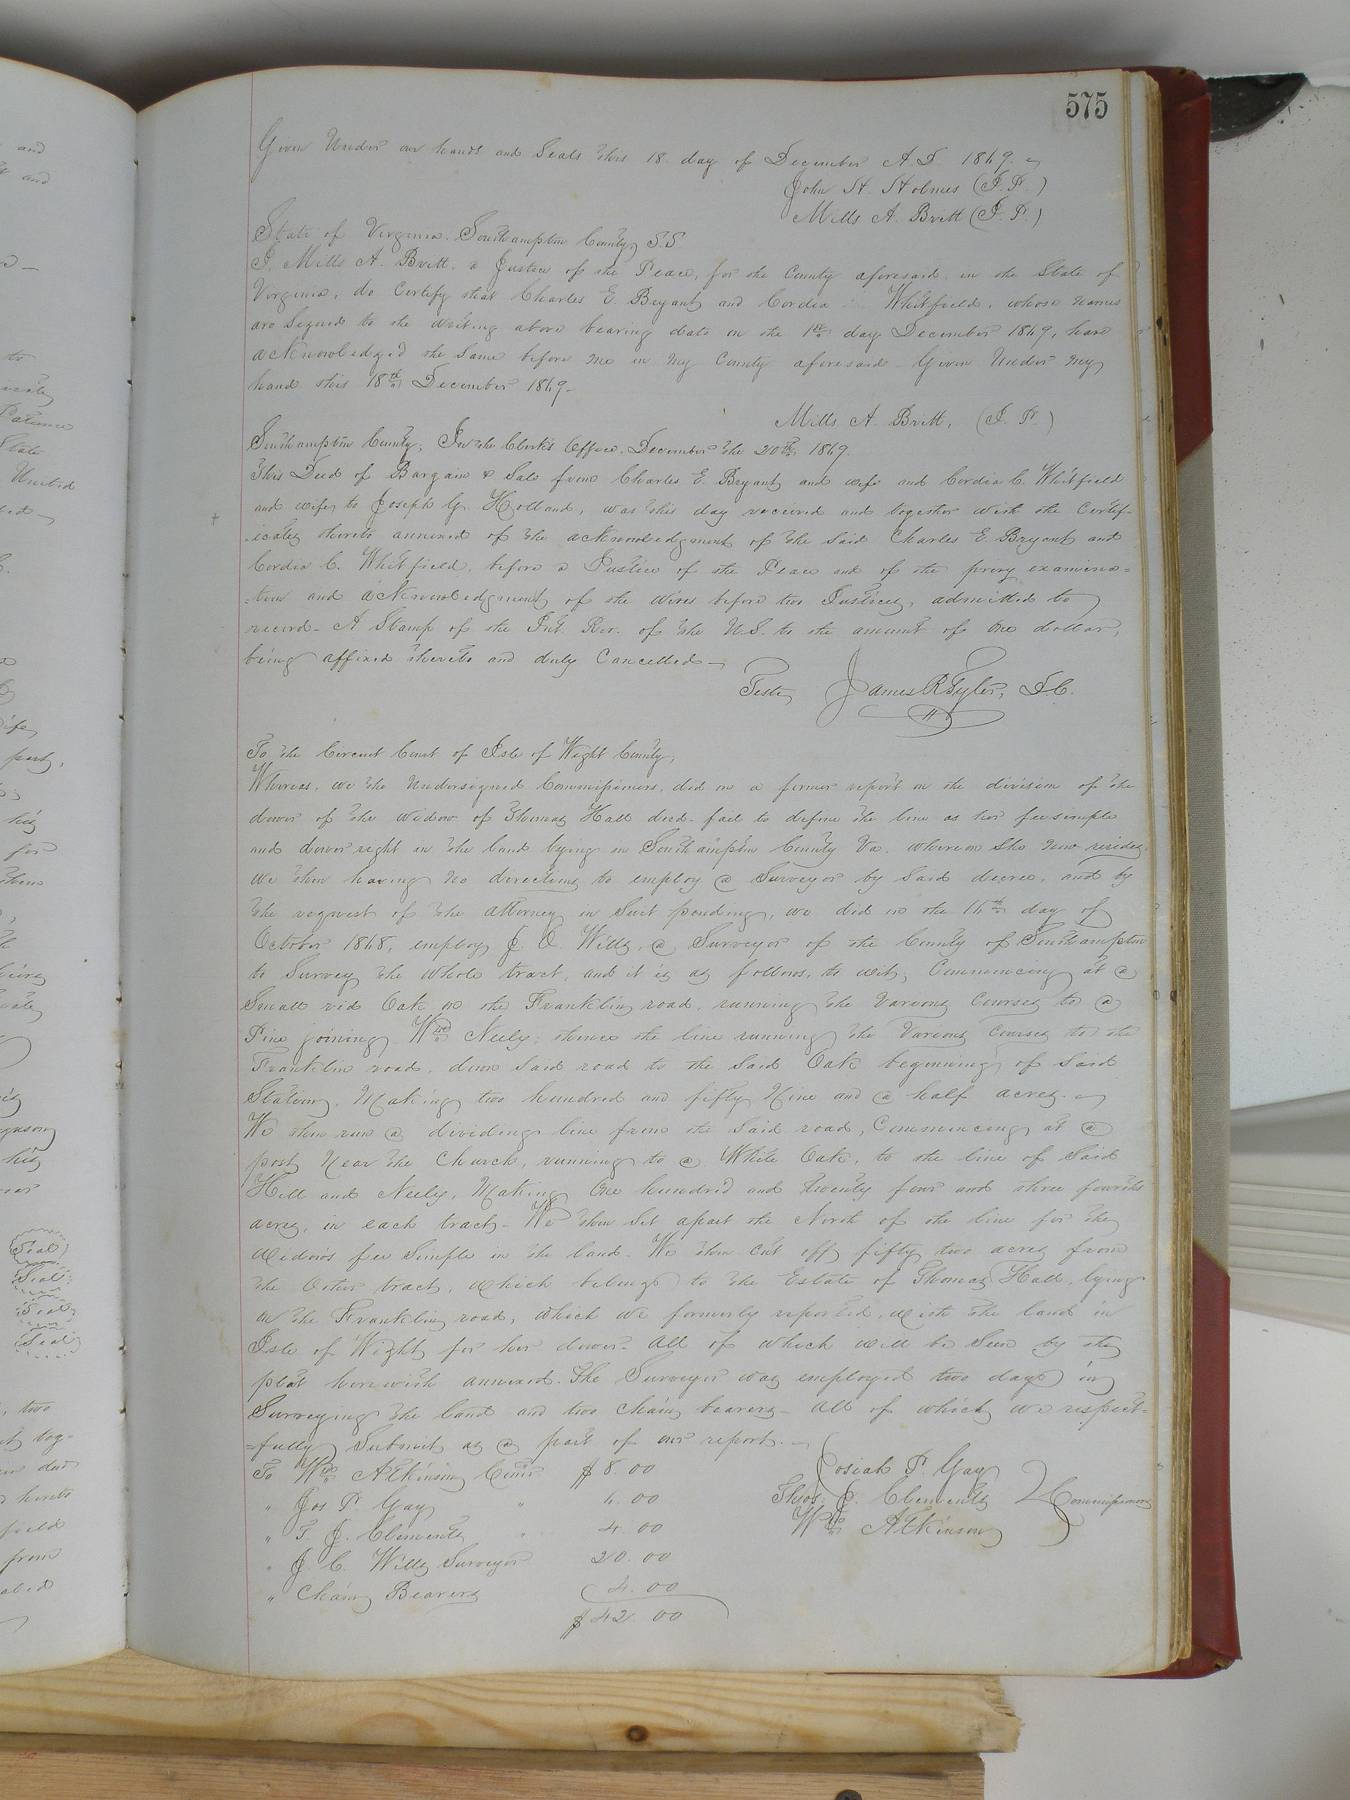 575
Given Under our hands and Seals this 18 day of December A.D. 1869.
John H. Holmes (J. P.)
Mills A. Britt (J. P.)
State of Virginia. Southampton County, S.S
I, Mills A. Britt, a Justice of the Peace, for the County aforesaid, in the State of
Virginia, do Certify that Charles E. Bryant and Cordia Whitfield, whose names
are Signed to the writing above bearing date on the 1st day December 1869, have
acknowledged the Same before me in my County aforesaid - Given Under my
hand this 18th December 1869-
Mills A. Britt, (J. P.)
Southampton County, In the Clerk's Office, December the 20th 1869.
This Deed of Bargain & Sale from Charles E. Bryant and wife and Cordia C. Whitfield
and wife, to Joseph G. Holland, was this day received and together with the Certif-
-icates thereto annexed of the acknowledgment of the said Charles E. Bryant and
Cordia C. Whitfield, before a Justice of the Peace and of the privy examina=
=tion and acknowledgment of the wives before two Justices, admitted to
record- A Stamp of the Int. Rev. of the U.S. to the amount of One dollar,
being affixed thereto and duly Cancelled-
Teste, James R Tyler, D.C.
To the Circuit Court of Isle of Wight County,
Whereas, we the Undersigned Commissioners, did in a former report on the division of the
dower of the widow of Thomas Hall decd. fail to define the line as her fee simple
and dower right in the land lying in Southampton County Va. whereon She now resides,
we then having no directions to employ a Surveyor by said decree, and by
the request of the attorney in Suit pending, we did on the 16th day of
October 1868, employ J. C. Wills, a Surveyor of the County of Southampton
to Survey the whole tract, and it is as follows, to wit, Commencing at a
Small red Oak on the Franklin road, running the Various Courses to a
Pine joining Wm Neely; thence the line running the Various Courses to the
Franklin road, down said road to the said Oak beginning of said
Station, Making two hundred and fifty Nine and a half acres.
We then run a dividing line from the said road, Commencing at a
post Near the Church, running to a White Oak, to the line of said
Hill and Neely, Making One hundred and twenty four and three fourths
acres, in each tract- We then Set apart the North of the line for the
widows fee Simple in the land. We then cut off fifty two acres from
the Other tract, which belongs to the Estate of Thomas Hall, lying
on the Franklin road, which we formerly reported, with the land in
Isle of Wight for her dower- all of which will be Seen by the
plat herewith annexed. The Surveyor was employed two days in
Surveying the land and two Chain bearers- All of which we respect=
=fully Submit as a part of our report.
To Wm Atkinson Comr $8.00
" Jos P. Gay " 4.00
" T J. Clements " 4.00
" J. C. Wills Surveyor 20.00
" Chain Bearers 4.00
$42.00
Josiah P. Gay
Thos. J. Clements Commissioners
Wm Atkinson